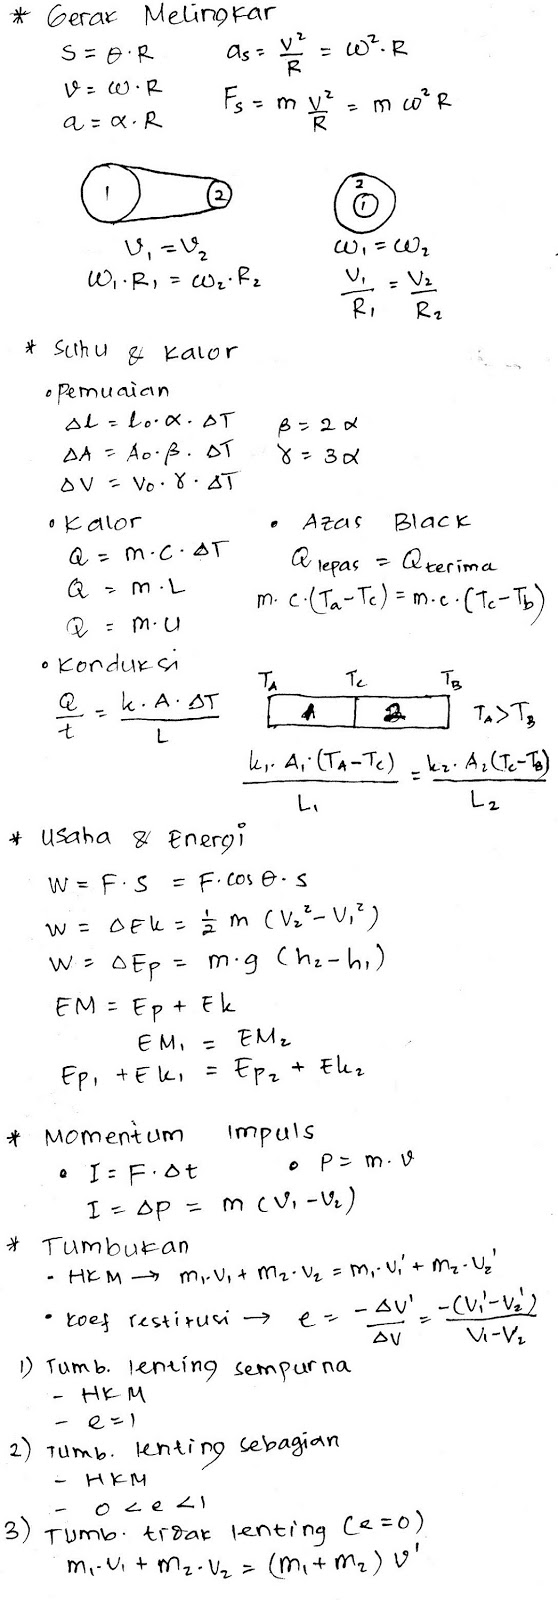 * Gerak Melingkar
S = θ·R
v = ω·R
a = α·R
as = v²/R = ω²·R
Fs = m v²/R = m ω² R
1 2
v₁ = v₂
ω₁·R₁ = ω₂·R₂
2
1
ω₁ = ω₂
V₁/R₁ = V₂/R₂
* Suhu & Kalor
• Pemuaian
ΔL = l₀·α·ΔT
ΔA = A₀·β·ΔT
ΔV = V₀·γ·ΔT
β = 2α
γ = 3α
• Kalor
Q = m·c·ΔT
Q = m·L
Q = m·U
• Azas Black
Q lepas = Q terima
m·c·(Ta-Tc) = m·c·(Tc-Tb)
• Konduksi
Q/t = k·A·ΔT/L
TA Tc TB
1 2 TA>TB
k₁·A₁·(TA-Tc)/L₁ = k₂·A₂(Tc-TB)/L₂
* Usaha & Energi
W = F·S = F·cos θ·s
W = ΔEk = ½ m (V₂²-V₁²)
W = ΔEp = m·g (h₂-h₁)
EM = Ep + Ek
EM₁ = EM₂
Ep₁ + Ek₁ = Ep₂ + Ek₂
* Momentum Impuls
• I = F·Δt • P = m·v
I = Δp = m (v₁-v₂)
* Tumbukan
- HKM → m₁·v₁ + m₂·v₂ = m₁·v₁' + m₂·v₂'
• koef restitusi → e = -ΔV'/ΔV = -(V₁'-V₂')/V₁-V₂
1) Tumb. lenting sempurna
- HKM
- e=1
2) Tumb. lenting sebagian
- HKM
- 0 < e < 1
3) Tumb. tidak lenting (e=0)
m₁·v₁ + m₂·v₂ = (m₁+m₂) v'